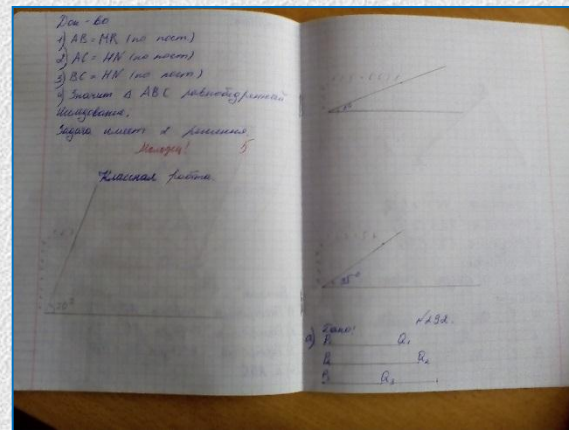 Док-во
1) AB = MR (по пост)
2) AC = HN (по пост)
3) BC = HN (по пост)
4) Значит Δ ABC равнобедренный
Исследование.
Задача имеет 2 решения
Молодец! 5
Классная работа.
35°
№292.
Дано:
а) P₁ Q₁
P₂ Q₂
P₃ Q₃